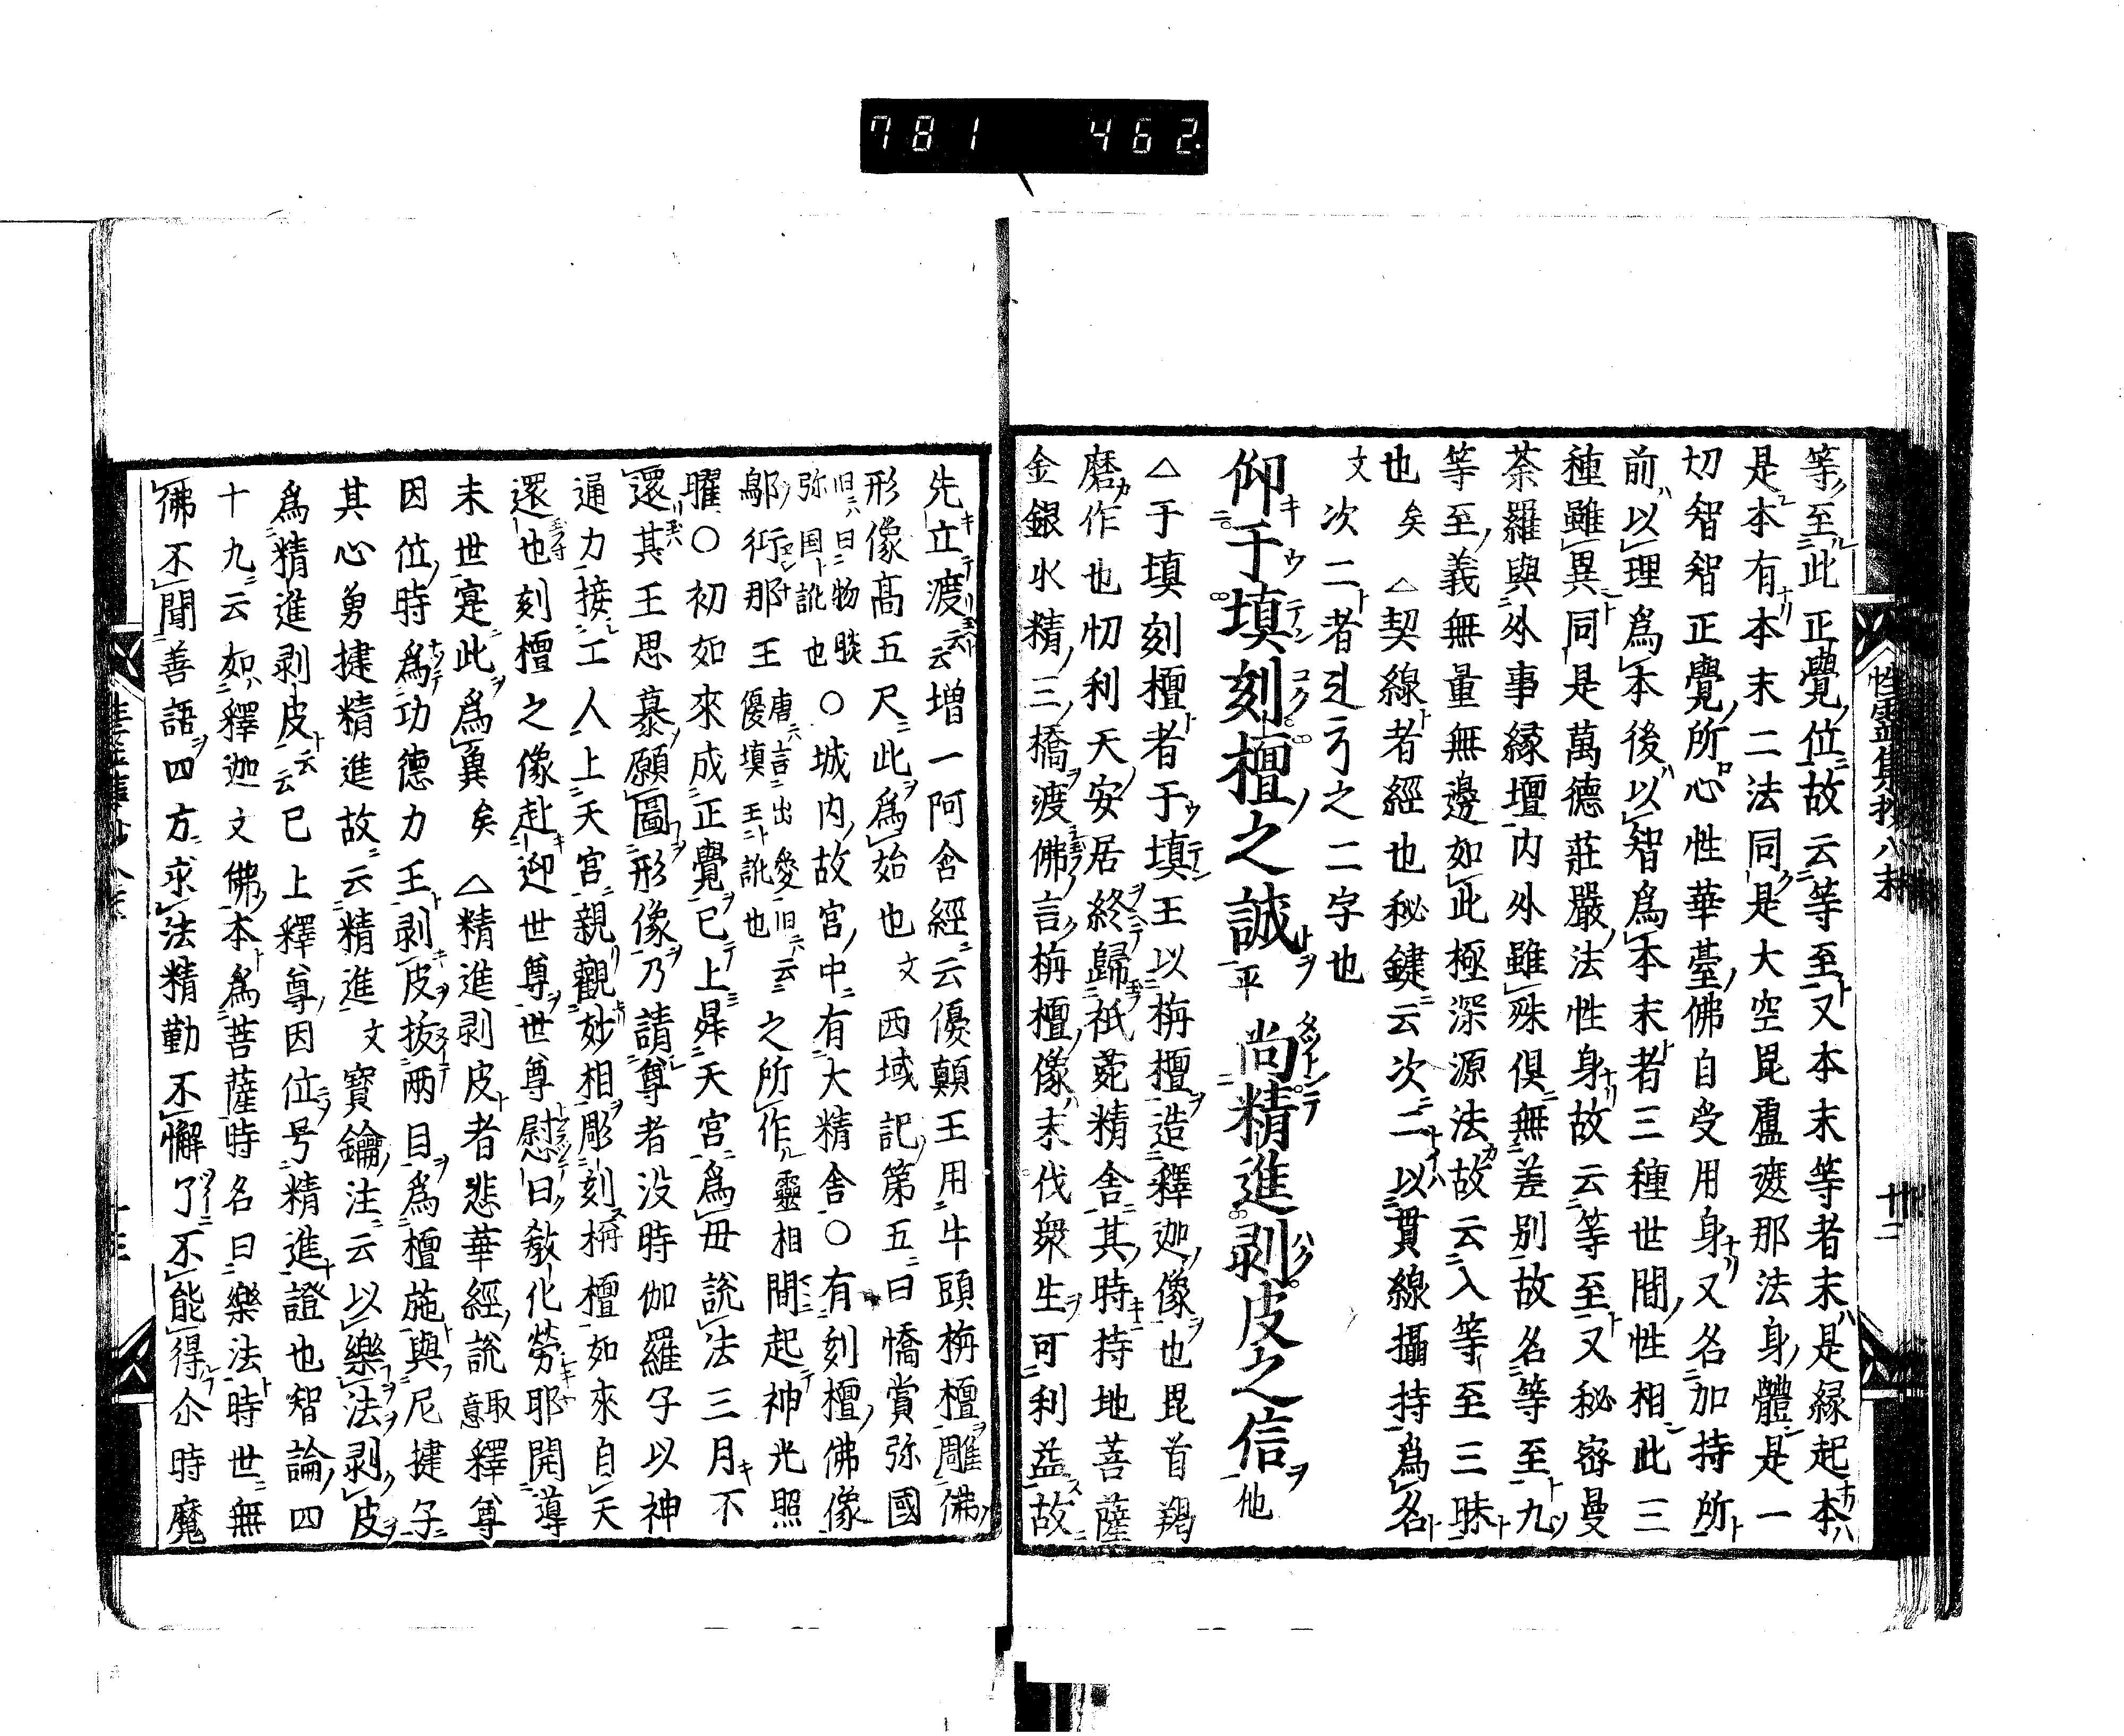 781 462
性霊集抄八末 十二
等至此正覺位故云等至又本末等者末是縁起本
是本有本末二法同是大空毘盧遮那法身體是一
切智智正覺所心性華臺佛自受用身又名加持所
前以理爲本後以智爲本末者三種世間性相此三
種雖異同是萬德莊嚴法性身故云等至又秘密曼
荼羅與外事縁壇内外雖殊倶無差别故名等至九
等至義無量無邊如此極深源法故云入等至三昧
也矣 △契線者經也秘鍵云次二以貫線攝持爲名
文次二者辶亍之二字也
仰于填刻檀之誠平 尚精進剥皮之信他
△于填刻檀者于填王以栴檀造釋迦像也毘首羯
磨作也忉利天安居終歸祇薗精舎其時持地菩薩
金銀水精三橋渡佛言栴檀像末代衆生可利益故
先立渡云云増一阿含經云優顛王用牛頭栴檀雕佛
形像髙五尺此爲始也文西域記第五曰憍賞弥國
旧云曰物睒弥国訛也○城内故宮中有大精舎○有刻檀佛像
鄔衍那王唐言出愛旧云優填王訛也之所作靈相間起神光照
曜○初如來成正覺已上昇天宮爲母説法三月不
還其王思慕願圖形像乃請尊者没時伽羅子以神
通力接工人上天宮親觀妙相彫刻栴檀如來自天
還也刻檀之像赴迎世尊世尊慰曰教化勞耶開導
末世寔此爲冀矣 △精進剥皮者悲華經説取意釋尊
因位時爲功德力王剥皮拔兩目爲檀施與尼揵子
其心勇揵精進故云精進文寳鑰注云以樂法剥皮
爲精進剥皮云云已上釋尊因位号精進證也智論四
十九云如釋迦文佛本爲菩薩時名曰樂法時世無
佛不聞善語四方求法精勤不懈了不能得尒時魔